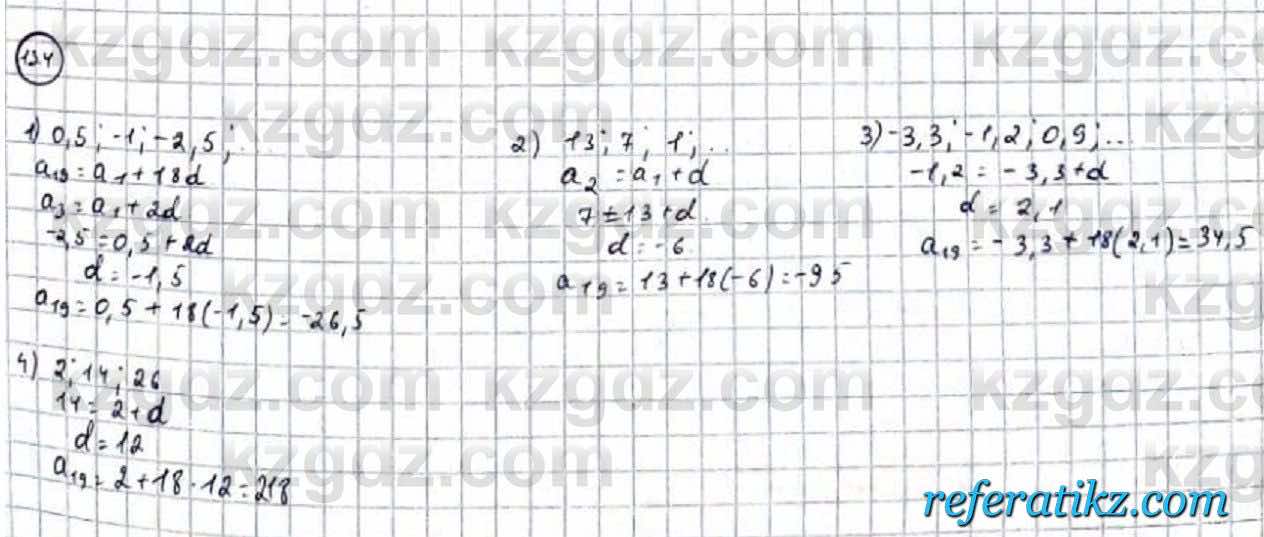 13.4
1) 0,5; -1; -2,5; ..
a₁₉ = a₁ + 18d
a₃ = a₁ + 2d
-2,5 = 0,5 + 2d
d = -1,5
a₁₉ = 0,5 + 18(-1,5) = -26,5
2) 13; 7; 1; ..
a₂ = a₁ + d
7 = 13 + d
d = -6
a₁₉ = 13 + 18(-6) = -95
3) -3,3; -1,2; 0,9; ...
-1,2 = -3,3 + d
d = 2,1
a₁₉ = -3,3 + 18(2,1) = 34,5
4) 2; 14; 26
14 = 2 + d
d = 12
a₁₉ = 2 + 18 · 12 = 218
kzgdz.com
referatikz.com